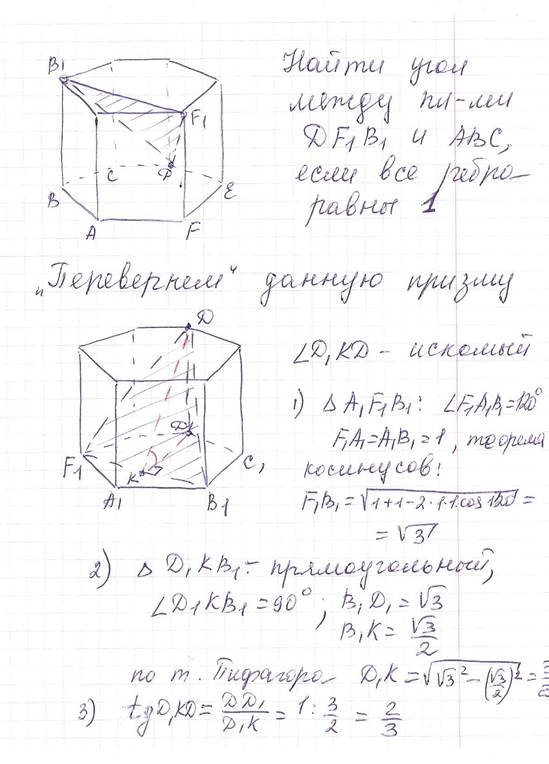 B1
F1
C
D
B
E
A
F
Найти угол
между пл-ми
DF1B1 и ABC,
если все ребра
равны 1
„Перевернем“ данную призму
D
∠D1KD - искомый
D1
F1
K
C1
A1
B1
1) Δ A1F1B1: ∠F1A1B1=120°
F1A1=A1B1=1, теорема
косинусов:
F1B1=√1+1-2·1·1·cos120°=
=√3
2) Δ D1KB1- прямоугольный,
∠D1KB1=90°; B1D1=√3
B1K=√3/2
по т. Пифагора D1K=√√3²-(√3/2)²=3/2
3) tgD1KD=DD1/D1K=1:3/2=2/3